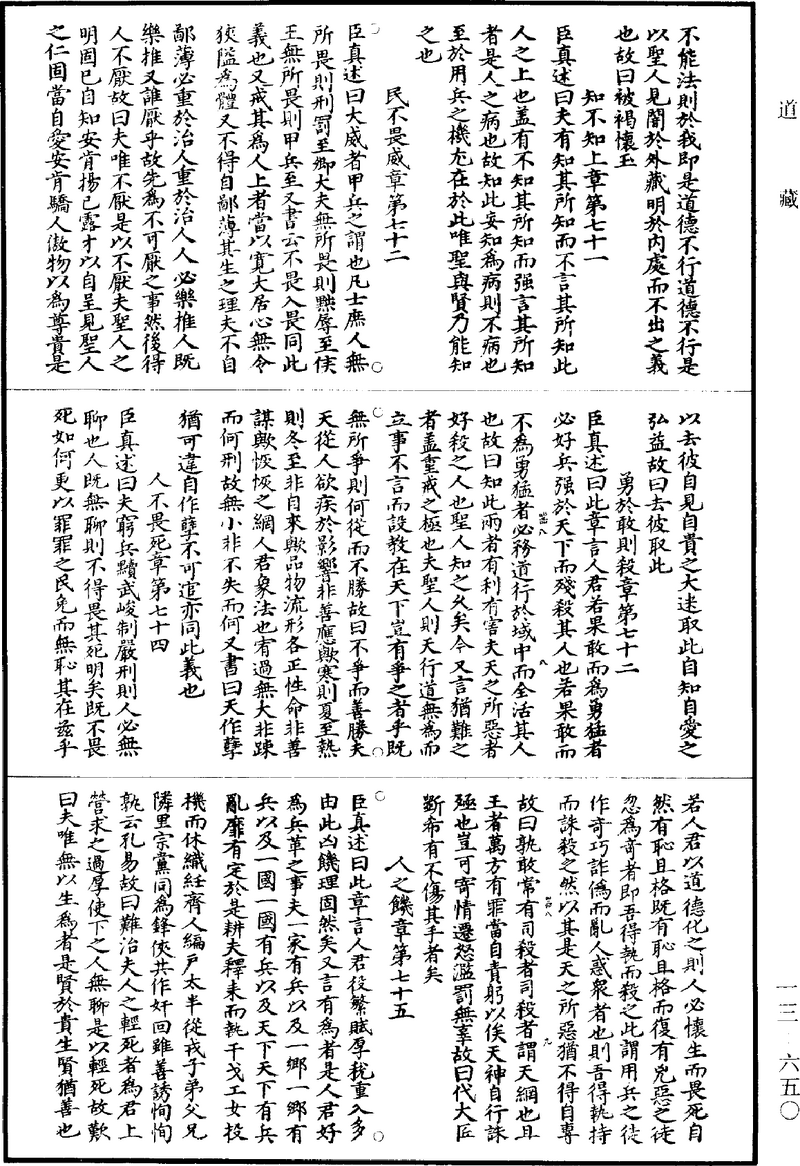 道藏
不能法則於我即是道德不行道德不行是
以聖人見闇於外藏明於內處而不出之義
也故曰被褐懷玉
知不知上章第七十一
臣真述曰夫有知其所知而不言其所知此
人之上也蓋有不知其所知而强言其所知
者是人之病也故知此妄知為病則不病也
至於用兵之機尤在於此唯聖與賢乃能知
之也
民不畏威章第七十二
臣真述曰大威者甲兵之謂也凡士庶人無
所畏則刑罰至卿大夫無所畏則黜辱至侯
王無所畏則甲兵至又書云不畏入畏同此
義也又戒其為人上者當以寬大居心無令
狹隘為體又不得自鄙薄其生之理夫不自
鄙薄必重於治人重於治人人必樂推人既
樂推又誰厭乎故先為不可厭之事然後得
人不厭故曰夫唯不厭是以不厭夫聖人之
明固已自知安肯揚已露才以自呈見聖人
之仁固當自愛安肯驕人傲物以為尊貴是
以去彼自見自貴之大迷取此自知自愛之
弘益故曰去彼取此
勇於敢則殺章第七十二
臣真述曰此章言人君若果敢而為勇猛者
必好兵强於天下而殘殺其人也若果敢而
不為勇猛者必務道行於域中而全活其人
也故曰知此兩者有利有害夫天之所惡者
好殺之人也聖人知之久矣今又言猶難之
者蓋重戒之極也夫聖人則天行道無為而
立事不言而設教在天下豈有爭之者乎既
無所爭則何從而不勝故曰不爭而善勝夫
天從人欲疾於影響非善應歟寒則夏至熱
則冬至非自來歟品物流形各正性命非善
謀歟恢恢之網人君象法也宥過無大非踈
而何刑故無小非不失而何又書曰天作孽
猶可違自作孽不可逭亦同此義也
人不畏死章第七十四
臣真述曰夫窮兵黷武峻制嚴刑則人必無
聊也人既無聊則不得畏其死明矣既不畏
死如何更以罪罪之民免而無恥其在茲乎
若人君以道德化之則人必懷生而畏死自
然有恥且格既有恥且格而復有兇惡之徒
忽為奇者即吾得執而殺之此謂用兵之徒
作奇巧詐偽而亂人惑衆者也則吾得執持
而誅殺之然以其是天之所惡猶不得自專
故曰孰敢常有司殺者司殺者謂天網也且
王者萬方有罪當自責躬以俟天神自行誅
殛也豈可寄情遷怒濫罰無辜故曰代大匠
斲希有不傷其手者矣
人之饑章第七十五
臣真述曰此章言人君役繁賦厚稅重入多
由此凶饑理固然矣又言有為者是人君好
為兵革之事夫一家有兵以及一鄉一鄉有
兵以及一國一國有兵以及天下天下有兵
亂靡有定於是耕夫釋耒而執干戈工女投
機而休織紝齊人編戶太半從戎子弟父兄
隣里宗黨同為鋒俠共作奸回雖善誘恂恂
孰云孔易故曰難治夫人之輕死者為君上
營求之過厚使下之人無聊是以輕死故歎
曰夫唯無以生為者是賢於貴生賢猶善也
一三·六五〇